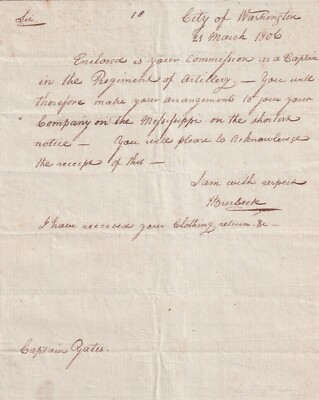 Sir 18 City of Washington
21 March 1806
Enclosed is your Commission as a Captain
in the Regiment of Artillery. – You will
therefore make your arrangements to join your
Company on the Mississippi on the shortest
notice – You will please to Acknowledge
the receipt of this –
I am with respect
HBurbeck
I have received your Clothing return &c –
Captain Yates.